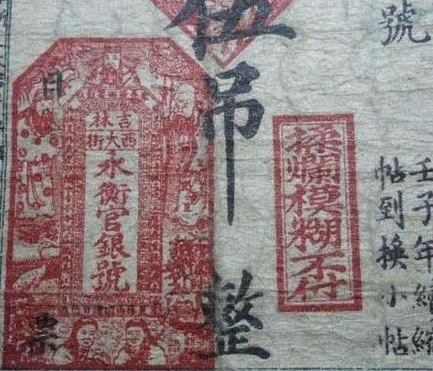 號
壬子年續
帖到換小帖
揉爛模糊不付
伍吊整
吉林
西大街
永衡官銀號
日
票